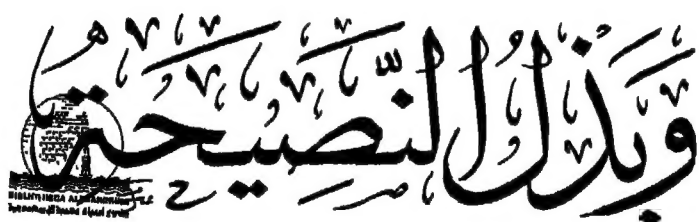 وَبَذْلُ النَّصِيحَةِ
BIBLIOTHECA ALEXANDRINA